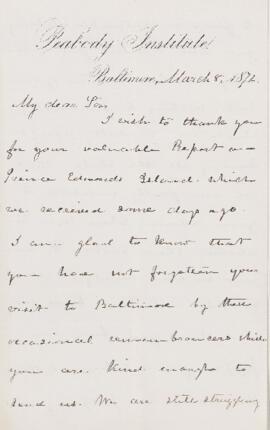 Peabody Institute
Baltimore, March 8, 1872.
My dear Sir,
I wish to thank you
for your valuable Report on
Prince Edwards Island which
we received some days ago.
I am glad to know that
you have not forgotten your
visit to Baltimore by these
occasional remembrances which
you are kind enough to
send us. We are still struggling